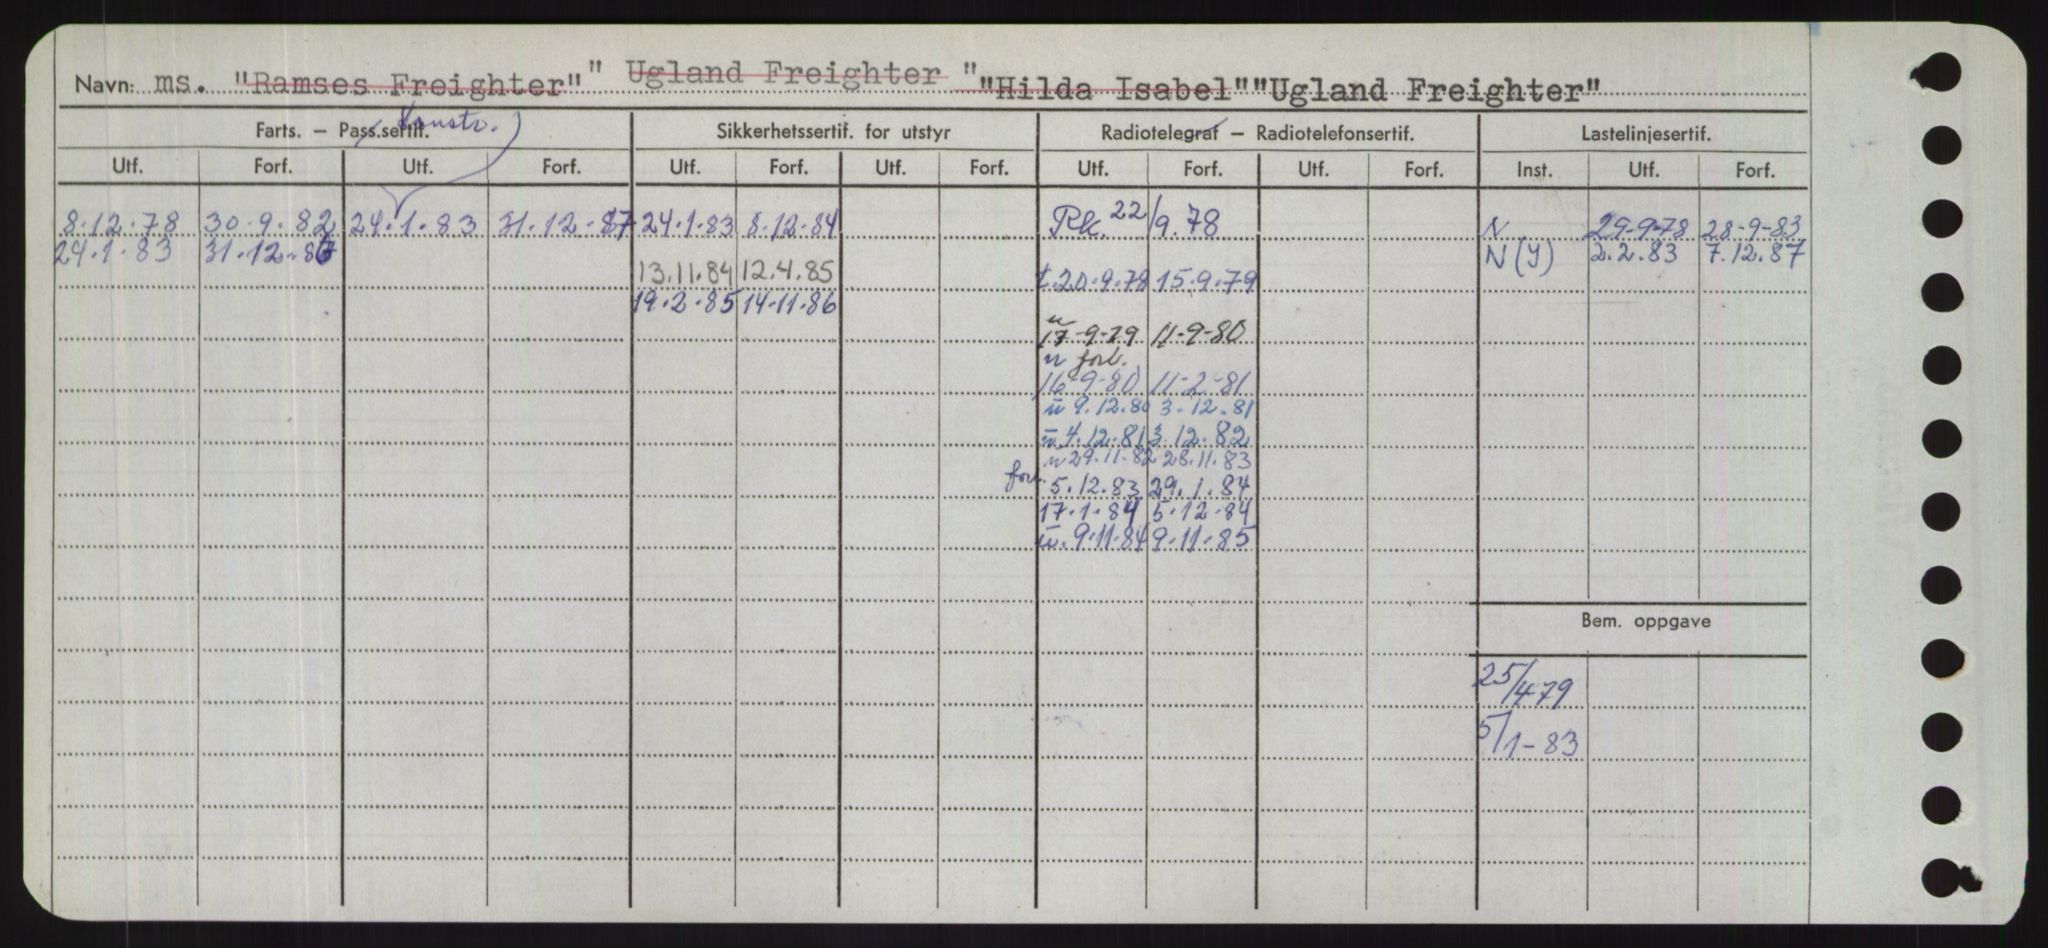 Navn: ms. "Ramses Freighter" " Ugland Freighter " "Hilda Isabel" "Ugland Freighter"
Farts. – Pass.sertif. (Konstr.) Sikkerhetssertif. for utstyr Radiotelegraf – Radiotelefonsertif. Lastelinjesertif.
Utf. Forf. Utf. Forf. Utf. Forf. Utf. Forf. Utf. Forf. Utf. Forf. Inst. Utf. Forf.
8.12.78 30.9.82 24.1.83 31.12.87 24.1.83 8.12.84 Rk. 22/9.78 N 29-9-78 28-9-83
24.1.83 31.12.87 N (Y) 2.2.83 7.12.87
13.11.84 12.4.85 t.20.9.78 15.9.79
19.2.85 14.11.86
17-9-79 11-9-80
n forl.
16-9-80 11-2-81
n 9.12.80 3.12.81
n 4.12.81 3.12.82
n 29.11.82 28.11.83
forl. 5.12.83 29.1.84
17.1.84 5.12.84
n. 9.11.84 9.11.85
Bem. oppgave
25/4 79
5/1-83